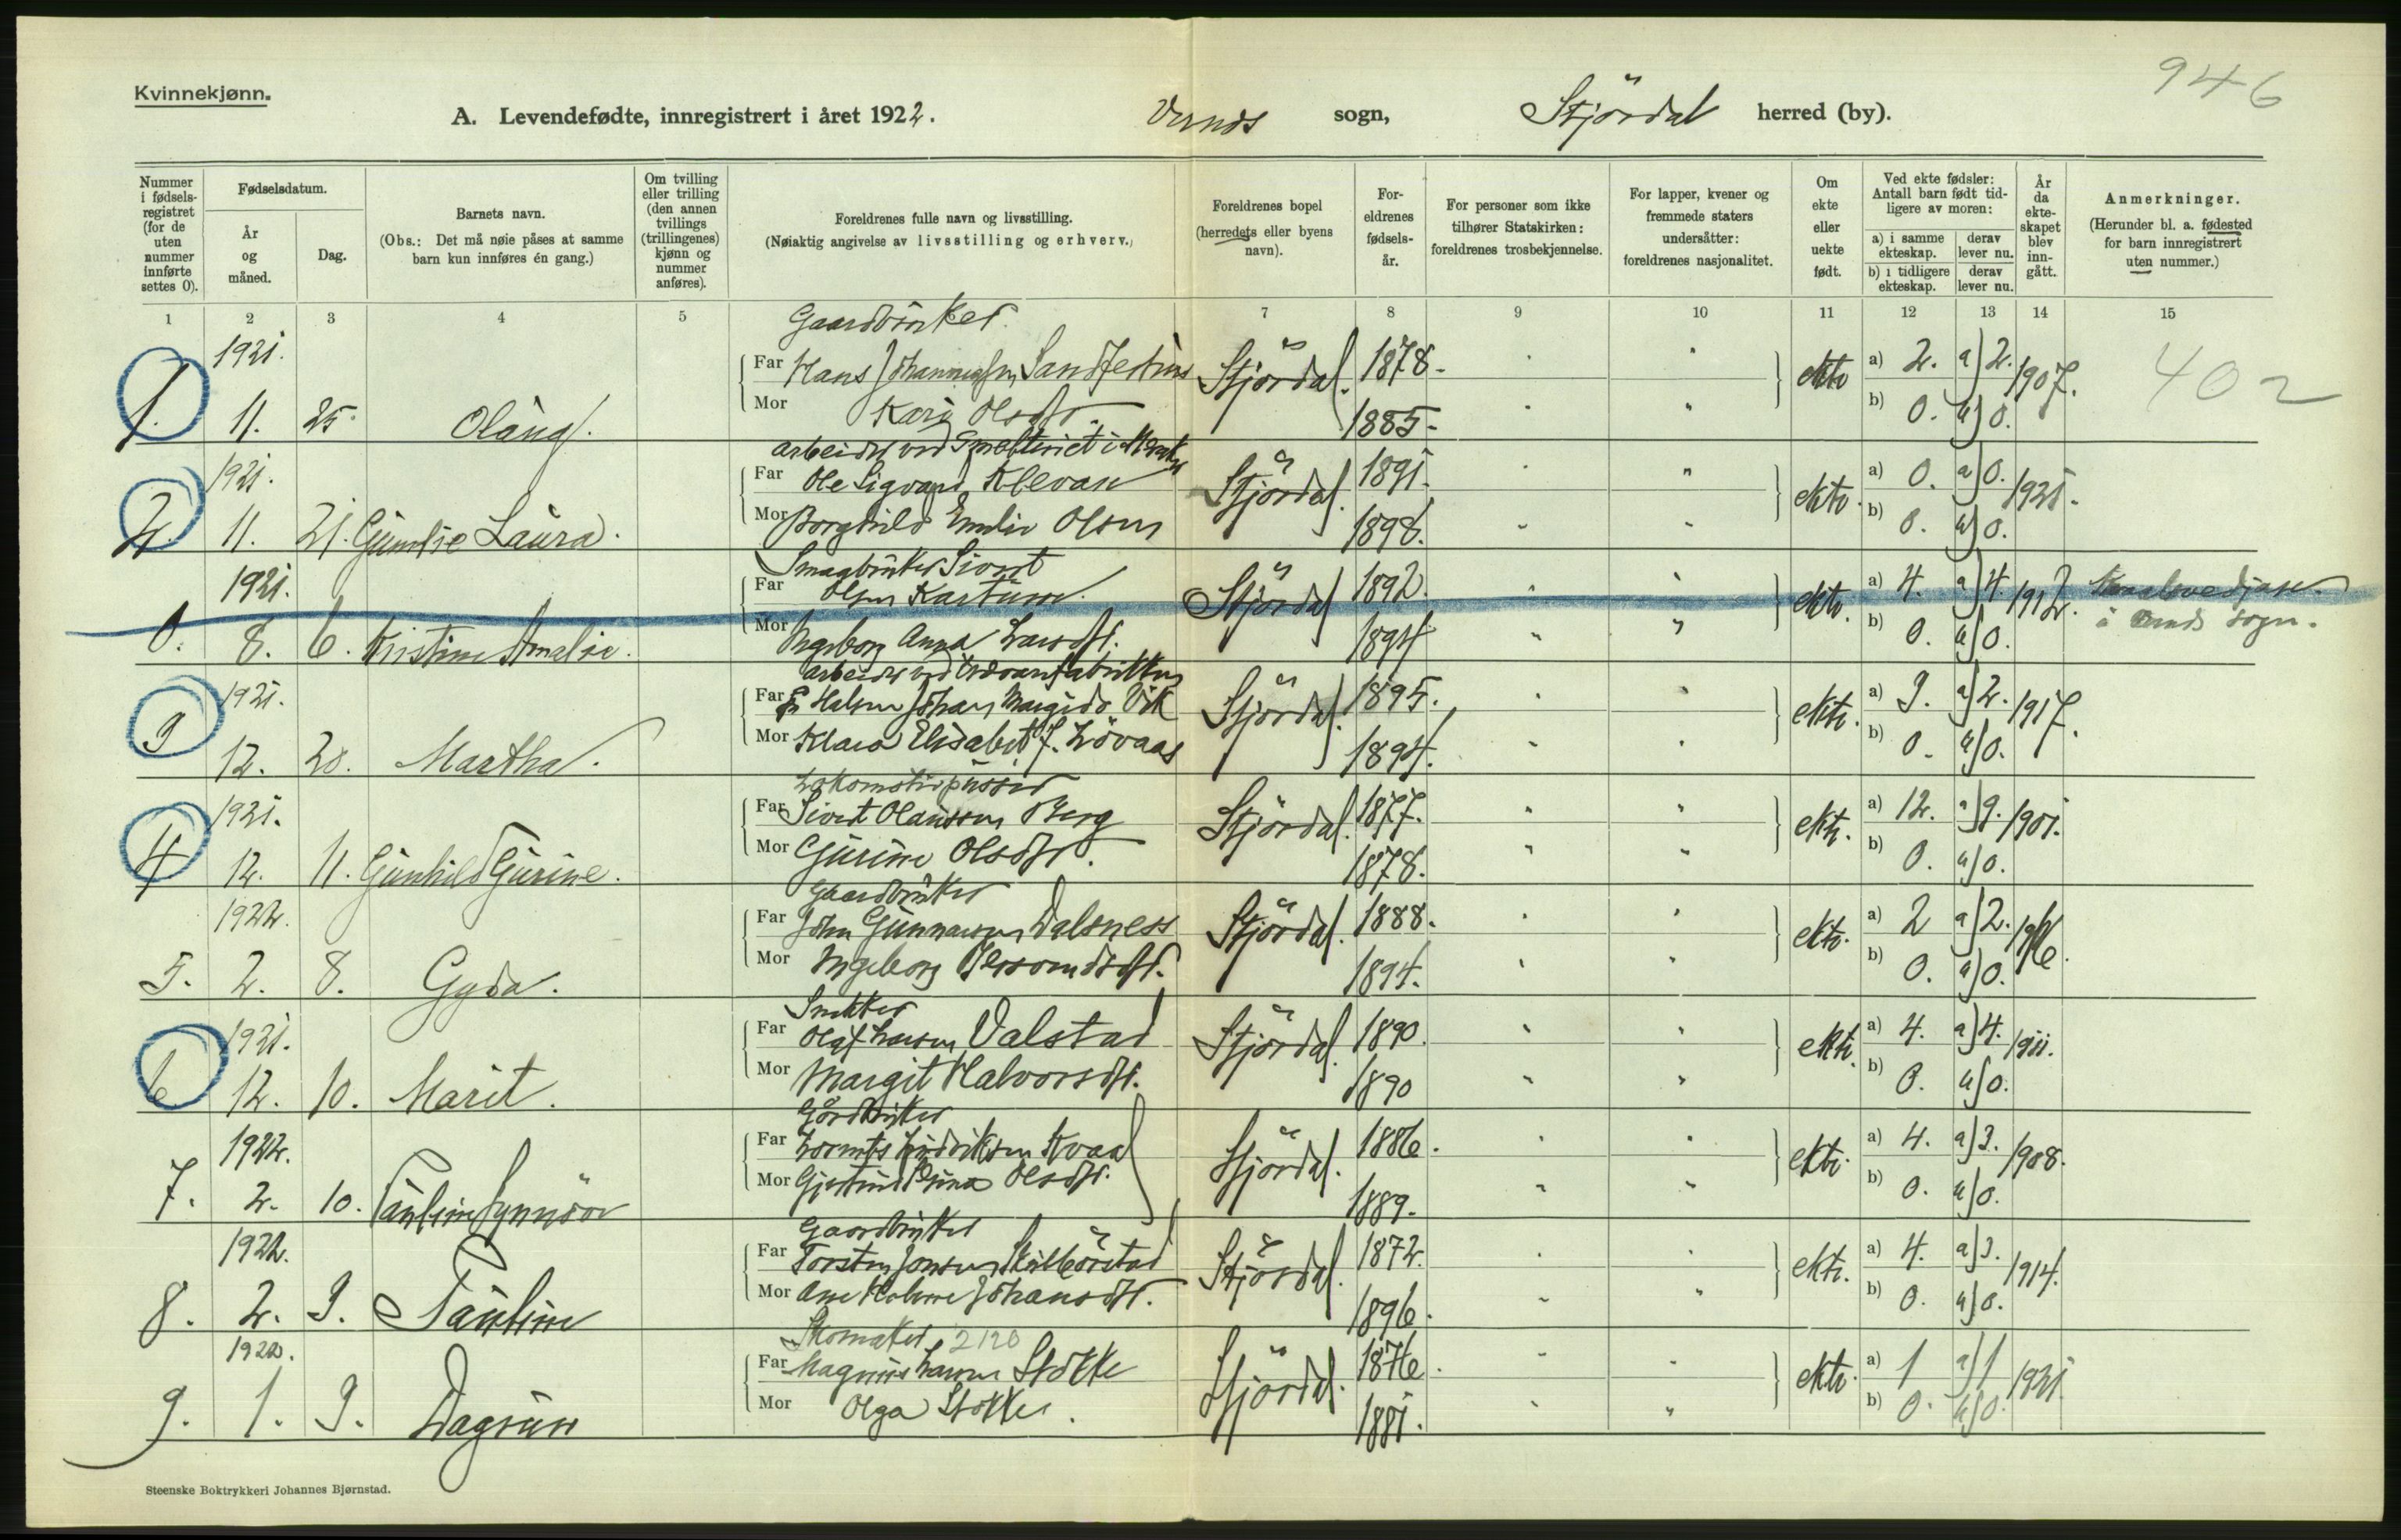 Kvinnekjønn.
946
A. Levendefødte, innregistrert i året 1922. Værnes sogn, Stjördal herred (by).
Nummer i fødselsregistret (for de uten nummer innførte settes 0).
Fødselsdatum.
År og måned.
Dag.
Barnets navn.
(Obs.: Det må nøie påses at samme barn kun innføres én gang.)
Om tvilling eller trilling (den annen tvillings (trillingenes) kjønn og nummer anføres).
Foreldrenes fulle navn og livsstilling.
(Nøiaktig angivelse av livsstilling og erhverv.)
Foreldrenes bopel (herredets eller byens navn).
Foreldrenes fødselsår.
For personer som ikke tilhører Statskirken: foreldrenes trosbekjennelse.
For lapper, kvener og fremmede staters undersåtter: foreldrenes nasjonalitet.
Om ekte eller uekte født.
Ved ekte fødsler: Antall barn født tidligere av moren:
a) i samme ekteskap. derav lever nu.
b) i tidligere ekteskap. derav lever nu.
År da ekteskapet blev inngått.
Anmerkninger.
(Herunder bl. a. fødested for barn innregistrert uten nummer.)
1 2 3 4 5 7 8 9 10 11 12 13 14 15
Gaardbruker
1921.
Far Hans Johannessen Stjördal. 1878. ekte a) 2. a) 2. 1907. 402
1. 11. 25. Olaug.
Mor Kari Olsdtr. 1885. b) 0. b) 0.
arbeider ved Smelteriet i Meraker
1921.
Far Ole Sigvard Klevan Stjördal. 1891. ekte. a) 0. a) 0. 1921.
2. 11. 21. Gunelie Laura.
Mor Borghild Emilie Olsen 1898. b) 0. b) 0.
Smaabruker Sivert
1921.
Far Olsen Stjördal 1892. ekte. a) 4. a) 4. 1912.
0. 8. 6. Kristine Amalie.
Mor Ingeborg Anna Larsdtr. 1894 b) 0. b) 0.
i sogn.
arbeider ved
1921.
Far Johan Vik Stjördal. 1895. ekte. a) 3. a) 2. 1917.
3 12. 28. Martha.
Mor Klara Elisabet J. Lövaas 1894. b) 0. b) 0.
Lokomotivpusser
1921.
Far Sivert Olausson Berg Stjördal. 1877. ekte. a) 12. a) 9. 1901.
4 12. 11. Gunhild Gurine.
Mor Gurine Olsdtr. 1878. b) 0. b) 0.
Gaardbruker
1922.
Far John Gunnarson Dalsness Stjördal. 1888. ekte. a) 2 a) 2. 1916.
5. 2. 8. Gyda.
Mor Ingeborg 1894. b) 0. b) 0.
Snekker
1921.
Far Olaf Larsen Valstad Stjördal. 1890. ekte. a) 4. a) 4. 1911.
6 12. 10. Marit.
Mor Margit Halvorsdtr. 1890 b) 0. b) 0.
Gårdbruker
1922.
Far Lorents Kvaal Stjördal. 1886. ekte. a) 4. a) 3. 1908.
7. 2. 10. Pauline Synnöve
Mor Olsdtr. 1889. b) 0. b) 0.
Gaardbruker
1922.
Far Torsten Jonsen Stjördal. 1872. ekte. a) 4. a) 3. 1914.
8. 2. 3. Pauline
Mor Johansdtr. 1896. b) 0. b) 0.
Skomaker 2120
1922.
Far Magnus Larsen Stokke Stjördal. 1876. ekte. a) 1 a) 1 1921
9. 1. 3. Dagrun
Mor Olga Stokke. 1881. b) 0. b) 0.
Steenske Boktrykkeri Johannes Bjørnstad.